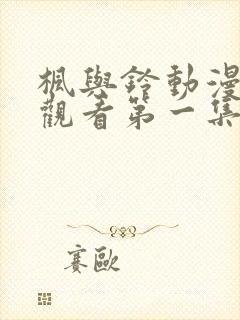 楓與鈴動漫
觀看第一集
賽歐